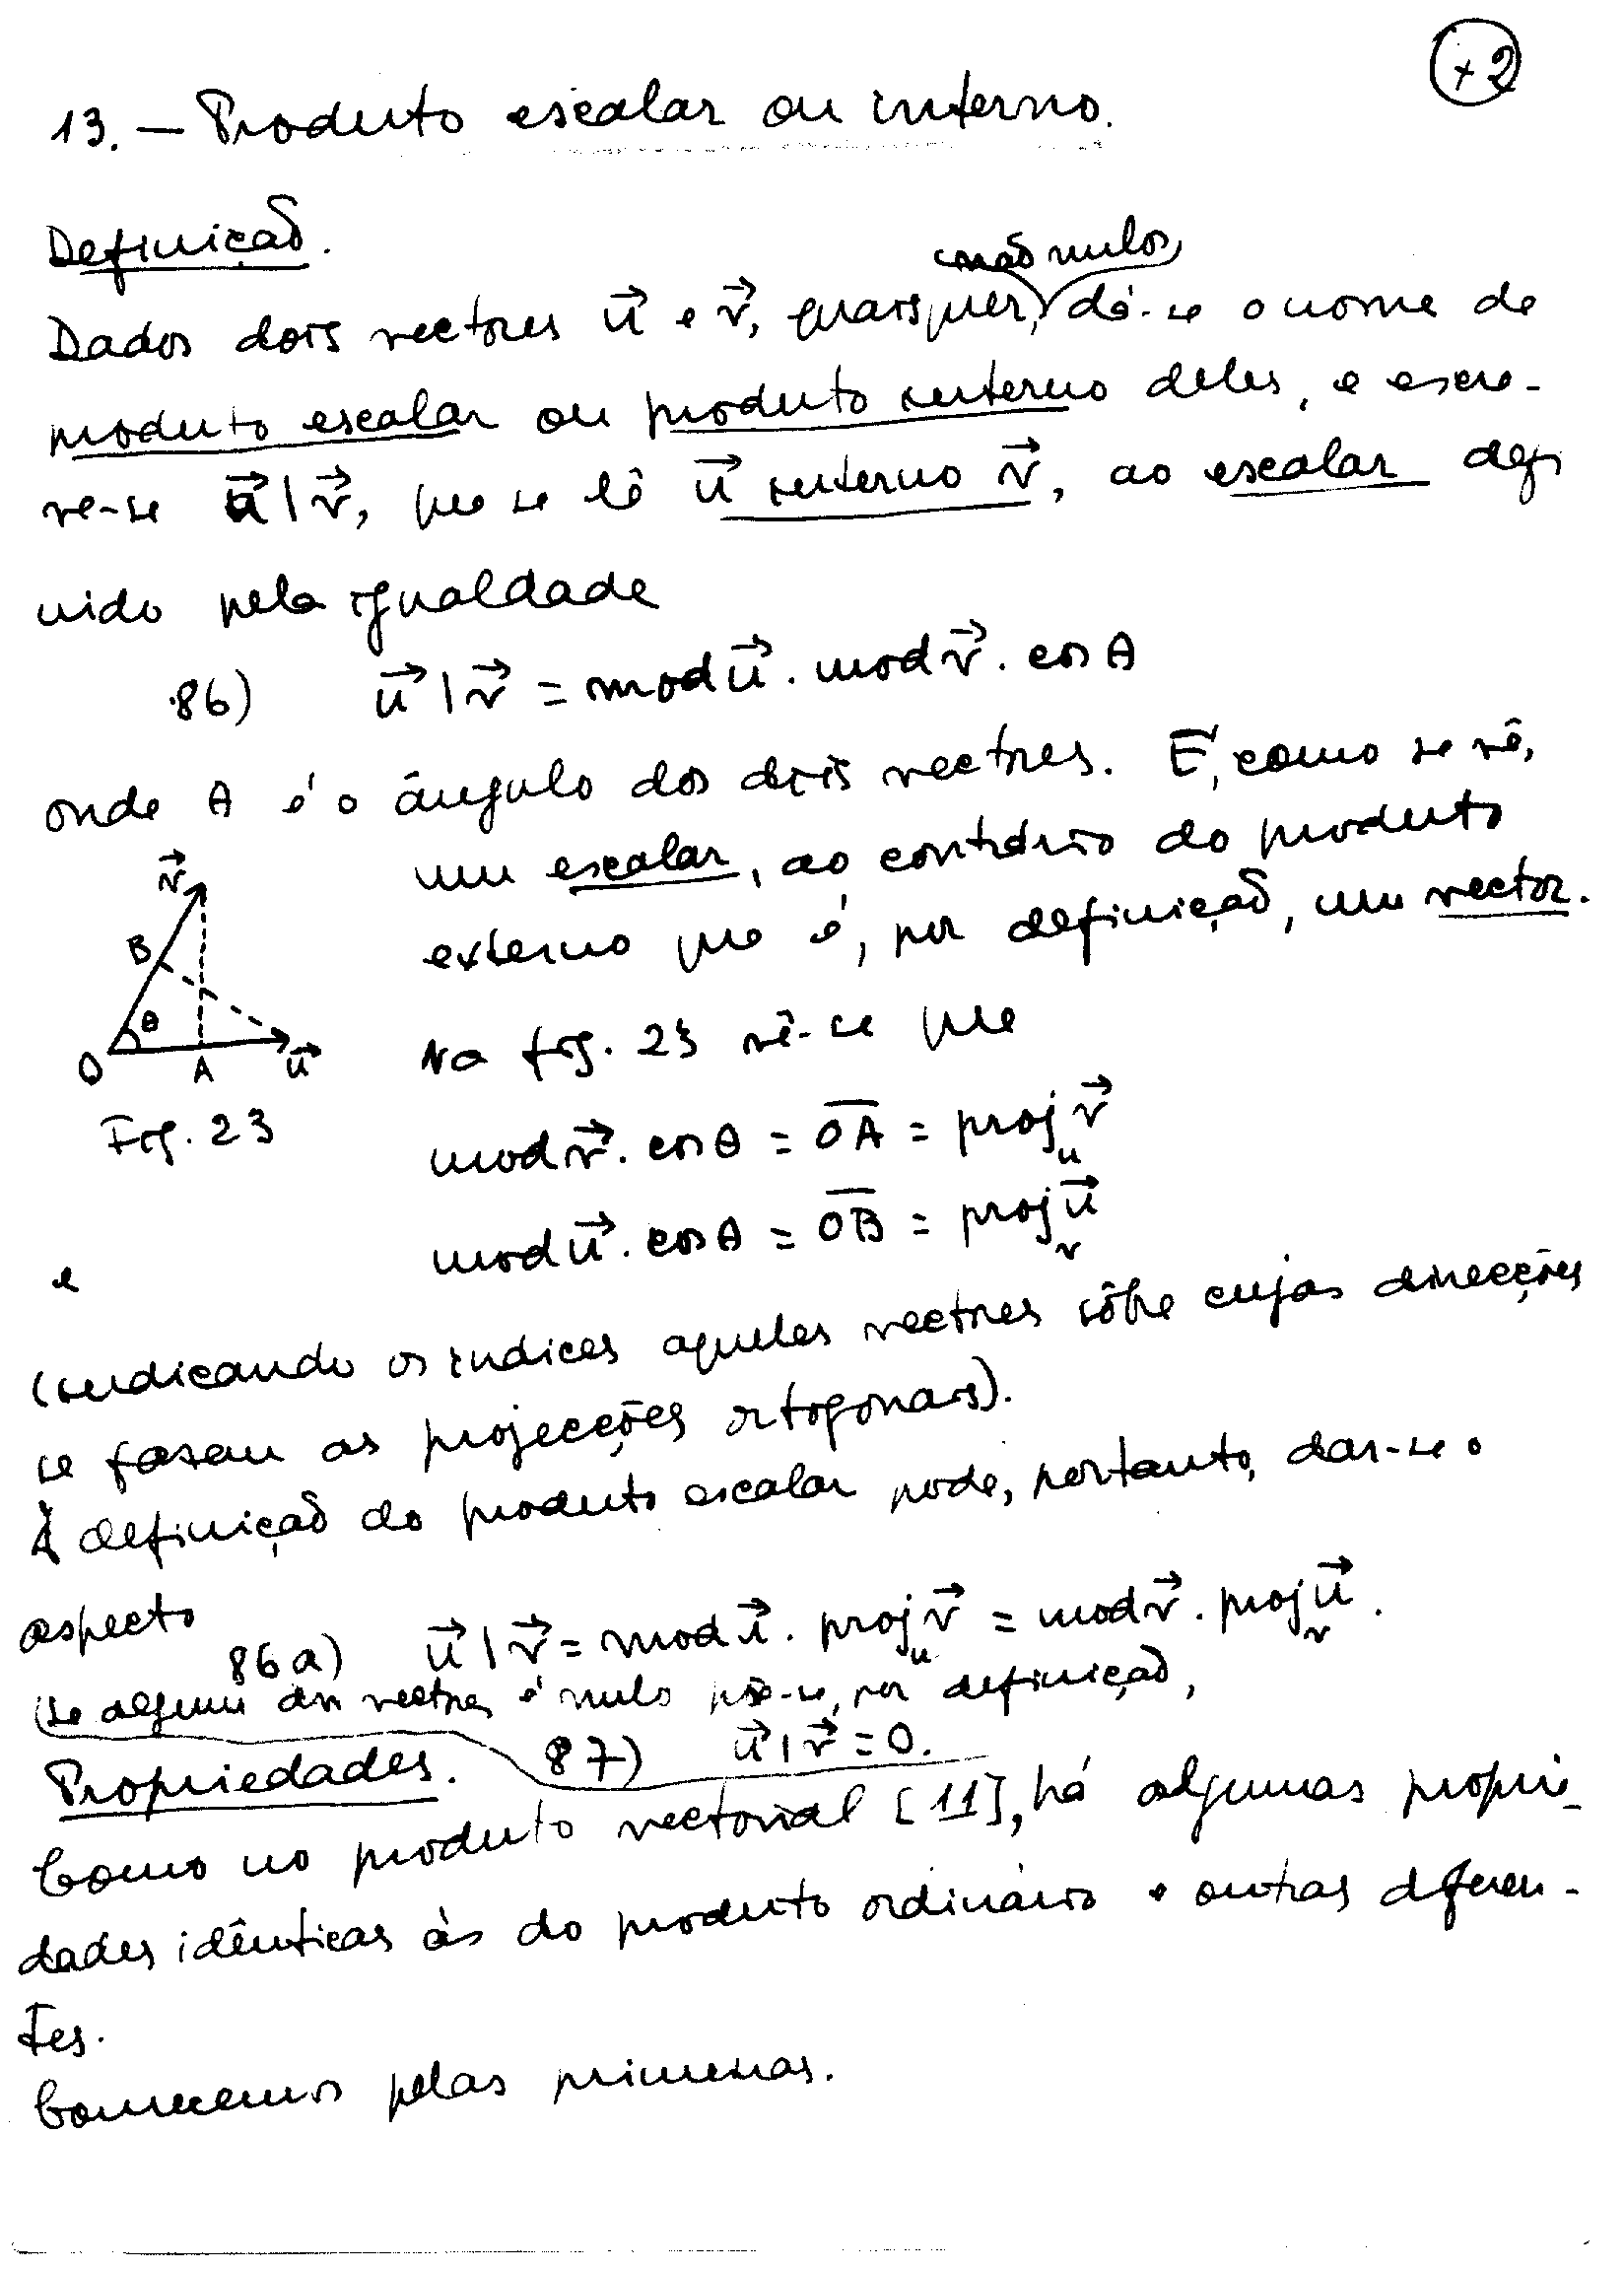 +2
13. — Produto escalar ou interno.
Definição.
não nulos
Dados dois vectores u⃗ e v⃗, quaisquer, dá-se o nome de
produto escalar ou produto interno deles, e escre-
ve-se u⃗ | v⃗, que se lê u⃗ interno v⃗, ao escalar defi
nido pela igualdade
86) u⃗ | v⃗ = mod u⃗ . mod v⃗ . cos θ
onde θ é o ângulo dos dois vectores. É, como se vê,
um escalar, ao contrário do produto
externo que é, por definição, um vector.
v⃗
B
θ
O A u⃗
Fig. 23
Na fig. 23 vê-se que
mod v⃗ . cos θ = OA = proj_u v⃗
e mod u⃗ . cos θ = OB = proj_v u⃗
(indicando os índices aqueles vectores sôbre cujas direcções
se fazem as projecções ortogonais).
A definição do produto escalar pode, portanto, dar-se o
aspecto
86a) u⃗ | v⃗ = mod u⃗ . proj_u v⃗ = mod v⃗ . proj_v u⃗ .
(Se algum dos vectores é nulo põe-se, por definição,
87) u⃗ | v⃗ = 0.
Propriedades.
Como no produto vectorial [11], há algumas proprie-
dades idênticas às do produto ordinário e outras diferen-
tes.
Comecemos pelas primeiras.